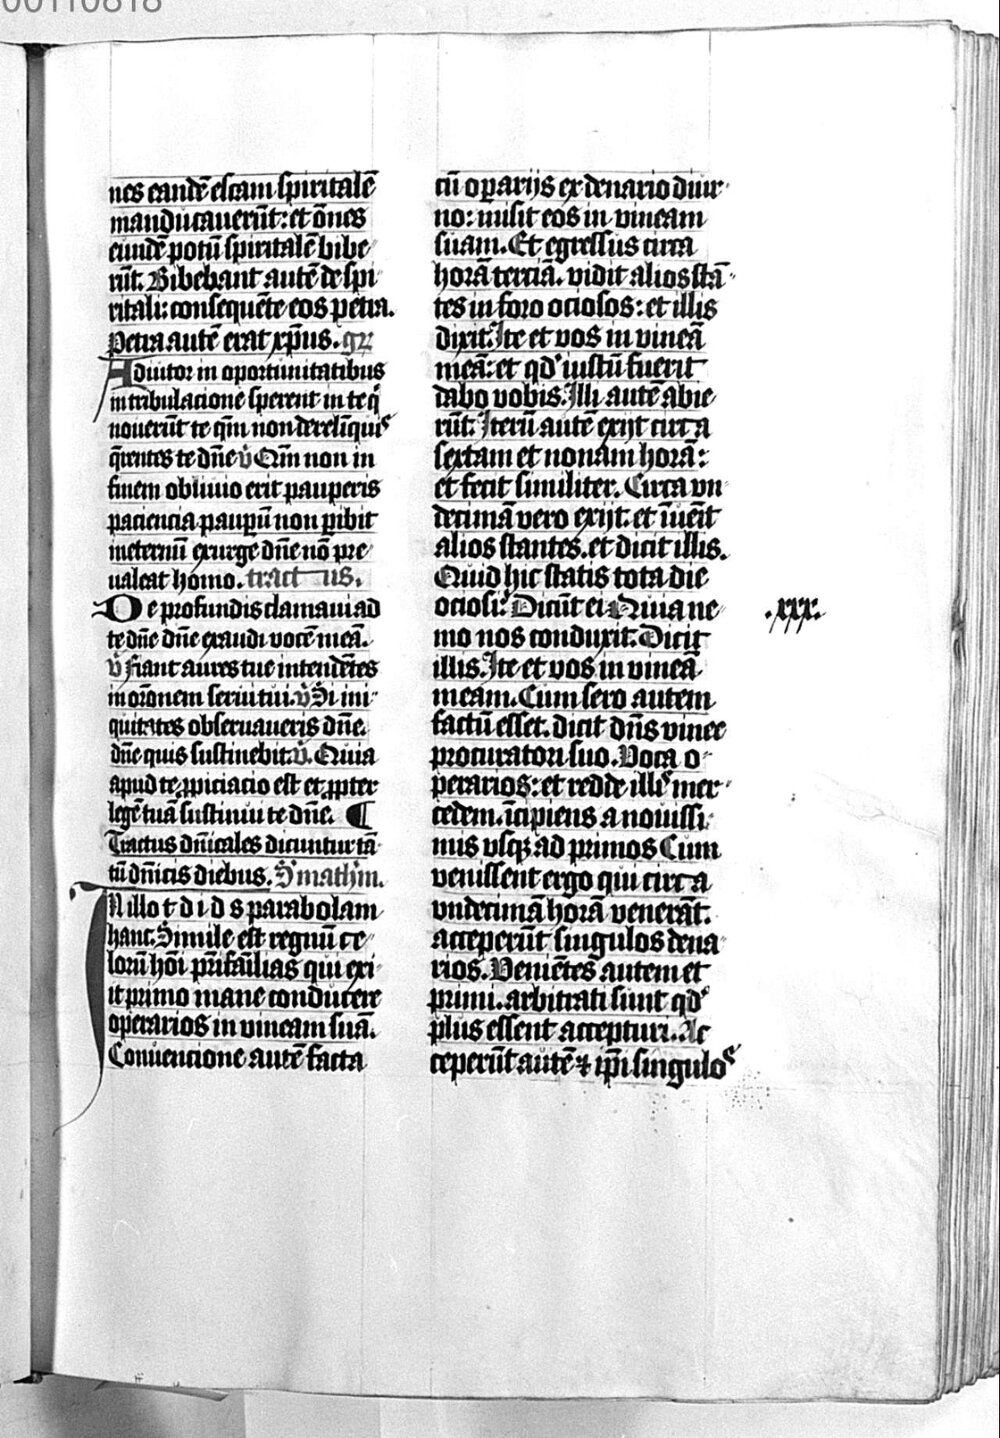 00110818
nes eandē escam spiritalē
manducauerūt: et ōnes
eundē potū spiritalē bibe
rūt. Bibebant autē de spi
ritali: consequēte eos petra.
Petra autē erat xp̄us. gr̄
Adiutor in oportunitatibus
in tribulacione sperent in te q̇
nouerūt te qm̄ non derelinquis
q̄rentes te dn̄e v̄ Qm̄ non in
finem obliuio erit pauperis
paciencia paupū non ꝑibit
in eternū exurge dn̄e nō pre
ualeat homo. tractus.
De profundis clamaui ad
te dn̄e dn̄e exaudi vocē meā.
v̄ Fiant aures tue intendētes
in orōnem serui tui. v̄ Si ini
quitates obseruaueris dn̄e.
dn̄e quis sustinebit. v̄. Quia
apud te ꝓpiciacio est et ꝓpter
legē tuā sustinui te dn̄e. ¶
Tractus dn̄icales dicuntur tā
tū dn̄icis diebus. S̄ math̄m.
IN illo t d i d s parabolam
hanc. Simile est regnū ce
lorū hōi pr̄ifāilias qui exi
it primo mane conducere
operarios in vineam suā.
Conuencione autē facta
cū oꝑarijs ex denario diur
no: misit eos in vineam
suam. Et egressus circa
horā terciā. vidit alios stā
tes in foro ociosos: et illis
dixit. Ite et vos in vineā
meā: et qd' iustū fuerit
dabo vobis. Illi autē abie
rūt. Iterū autē exijt circa
sextam et nonam horā:
et fecit similiter. Circa vn
decimā vero exijt. et īuēit
alios stantes. et dicit illis.
Quid hic statis tota die
ociosi. Dicūt ei Quia ne
.xxx.
mo nos conduxit. Dicit
illis. Ite et vos in vineā
meam. Cum sero autem
factū esset. dicit dn̄s vinee
procuratori suo. Voca o
perarios: et redde illis mer
cedem. īcipiens a nouissi
mis vsq; ad primos Cum
venissent ergo qui circa
vndecimā horā venerāt.
acceperūt singulos dena
rios. Veniētes autem et
primi. arbitrati sunt qd'
plus essent accepturi. Ac
ceperūt autē ⁊ ip̄i singulos